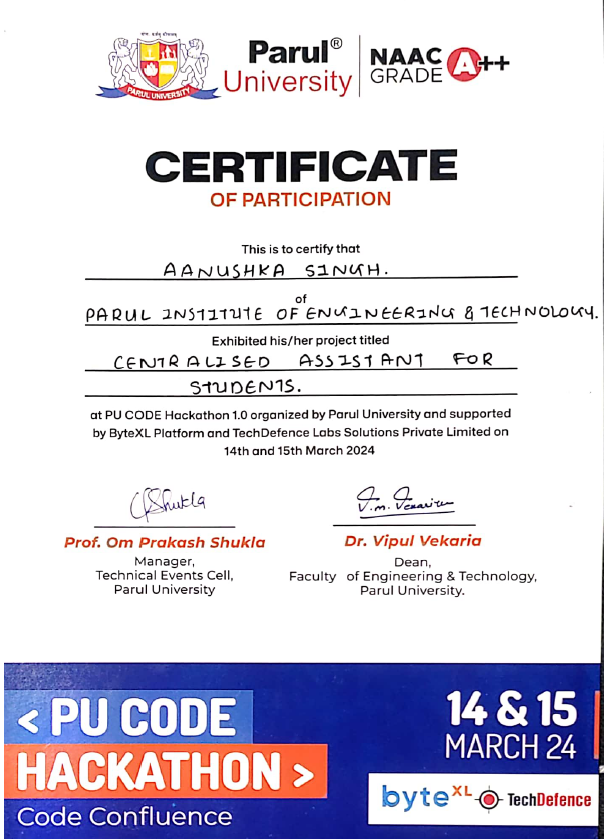 PARUL UNIVERSITY
Parul®
University
NAAC
GRADE A++
CERTIFICATE
OF PARTICIPATION
This is to certify that
AANUSHKA SINGH.
of
PARUL INSTITUTE OF ENGINEERING & TECHNOLOGY.
Exhibited his/her project titled
CENTRALISED ASSISTANT FOR
STUDENTS.
at PU CODE Hackathon 1.0 organized by Parul University and supported
by ByteXL Platform and TechDefence Labs Solutions Private Limited on
14th and 15th March 2024
Shukla
V.m. Vekariya
Prof. Om Prakash Shukla
Manager,
Technical Events Cell,
Parul University
Dr. Vipul Vekaria
Dean,
Faculty of Engineering & Technology,
Parul University.
< PU CODE
HACKATHON >
Code Confluence
14 & 15
MARCH 24
byteXL
TechDefence